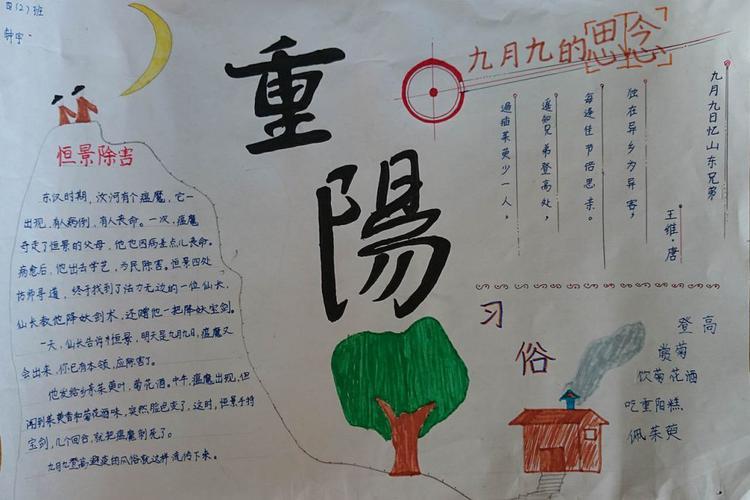 四(2)班
钟宇
重
陽
九月九的思念
九月九日忆山东兄弟
王维·唐
独在异乡为异客，
每逢佳节倍思亲。
遥知兄弟登高处，
遍插茱萸少一人。
恒景除害
东汉时期，汝河有个瘟魔，它一
出现，有人病倒，有人丧命。一次，瘟魔
夺走了恒景的父母，他也因病差点儿丧命。
病愈后，他出去学艺，为民除害。恒景四处
访师寻道，终于找到了法力无边的一位仙长，
仙长教他降妖剑术，还赠他一把降妖宝剑。
一天，仙长告诉恒景，明天是九月九日，瘟魔又
会出来，你已有本领，应除害了。
他发给乡亲茱萸叶，菊花酒。中午，瘟魔出现，但
闻到茱萸香和菊花酒味，突然脸色变了，这时，恒景手持
宝剑，几个回合，就把瘟魔刺死了。
九月九登高避疫的风俗就这样流传下来。
习
俗
登高
赏菊
饮菊花酒
吃重阳糕
佩茱萸